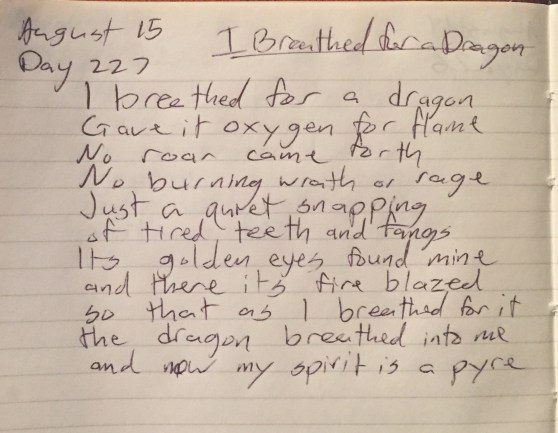 August 15
Day 227
I Breathed for a Dragon
I breathed for a dragon
Gave it oxygen for flame
No roar came forth
No burning wrath or rage
Just a quiet snapping
of tired teeth and fangs
Its golden eyes found mine
and there its fire blazed
so that as I breathed for it
the dragon breathed into me
and now my spirit is a pyre